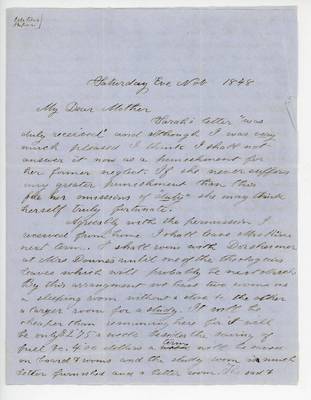 Saturday Eve Nov 1848
My Dear Mother
Sarah's letter "was
duly received" and although I was very
much pleased I think I shall not
answer it now as a punishment for
her former neglect. If she never suffers
any greater punishment than this
for her omissions of "duty" she may think
herself truly fortunate.
Agreeably with the permission I
received from home I shall leave
next term. I shall room with
at Mrs until one of the Theologues
leaves which will probably be next week
By this arrangement we have two rooms one
a sleeping room without a stove & the other
a larger room for a study. It will be
cheaper than remaining here for it will
be only $2.75 a week besides the saving of
fuel &c. 4.00 dollars a term will be saved
on board & rooms and the study room is much
better furnished and a better room. The bed &